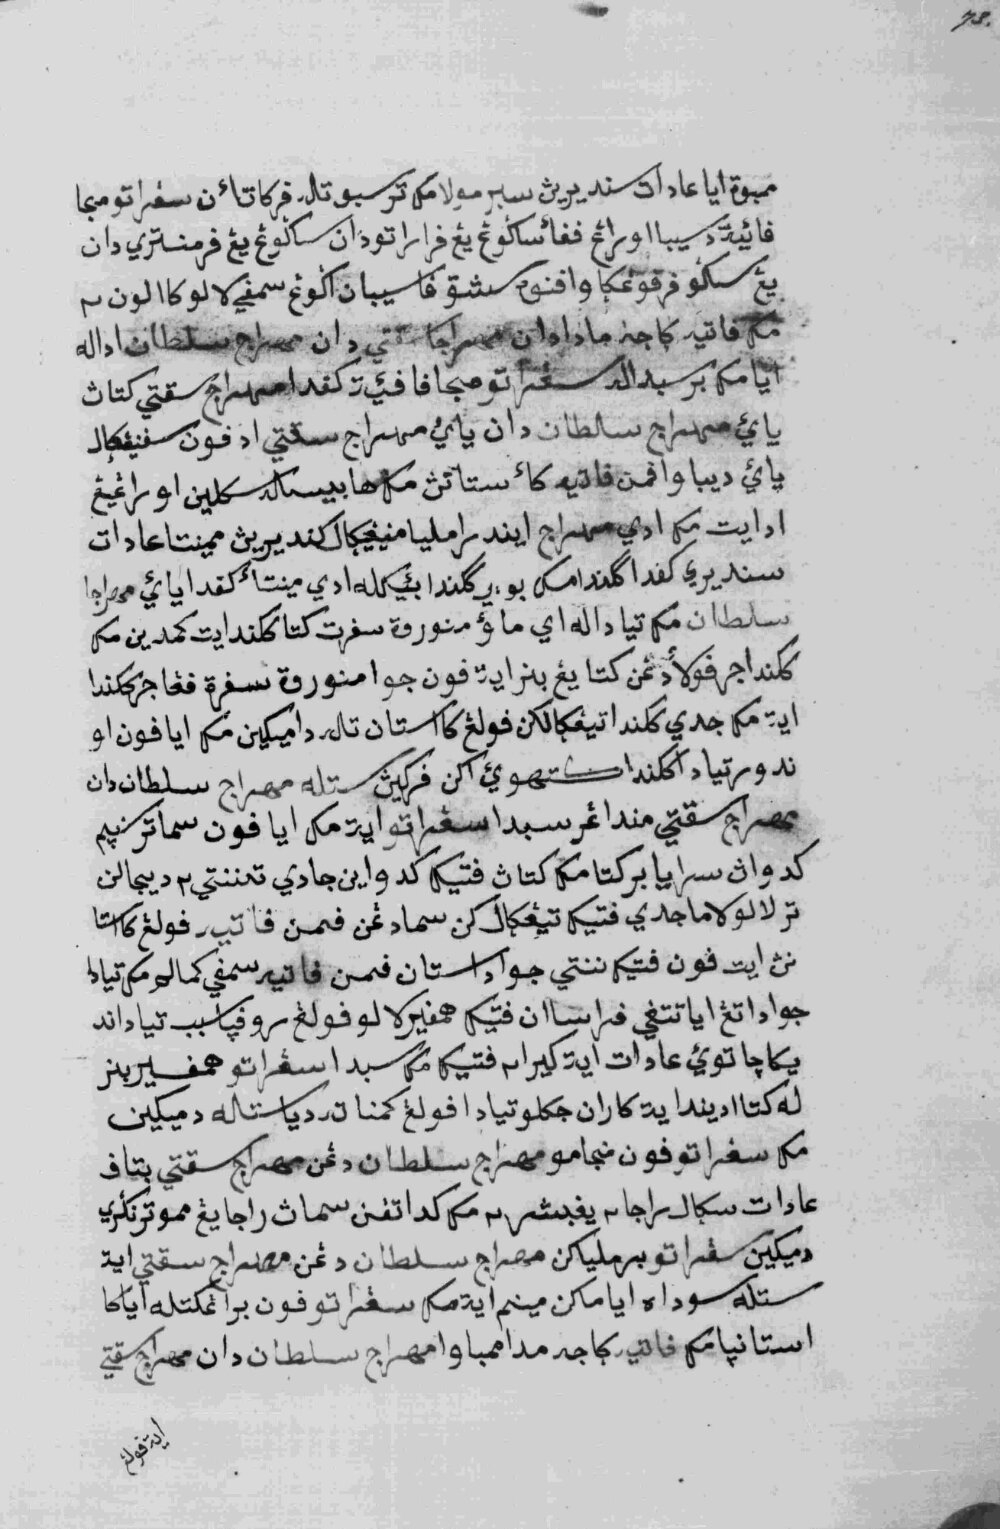 73.
ممبوة ايا عادات سنديريڽ سبرمولا مک ترسبوتله فرکاتاٴن سڠراتو مجا
فائيت دسيبا اورڠ ڤڠاٴ سکونڠ يڠ فرا راتو دان سکونڠ يڠ فرمنتري دان
يڠ سکلو فرڤوڠݢاوا فنوه سسق فاسيبان اݢوڠ سمفي لالو کاالون ٢
مک فاتيه ݢاجه مادا دان مهراج سقتي دان مهراج سلطان اداله
ايا مک برسبداله سڠراتو مجا فافئيت کفدا مهراج سقتي کتاڽ
يايئ مهراج سلطان دان يايئ مهراج سقتي ادفون سفنيڠݢال
يايئ ديباوا فمن فاتيه کاٴستاڽن مک هابيسله سکلين اورڠيڠ
ادايت مک ادي مهراج ايندرا مليا منيڠݢالکنديرين ممينتا عادات
سنديري کفدا ݢلندا مک بوير ݢلندا ايڤيکله ادي مينتاٴ کفدا يايئ مهراجا
سلطان مک تيادا له اي ماؤ منوروة سفرت کتا ݢلندايت کمدين مک
ݢلندا جر فولاٴ دڠن کتا يڠ بنر ايت فون جوا منوروة سفرة ڤڠاجر ݢلندا
ايت مک جدي ݢلندا تيڠݢالکن فولڠ کااستان تله دميکين مک ايافون او
ندور تيادا ݢلندا کتهوئ اکن فرݢيڽ ستله مهراج سلطان دان
مهراج سقتي منداڠر سبدا سڠراتو ايت مک ايافون سماترسپيم
کدواڽ سرايا برکتا مک کتاڽ فتيک کدواين جادي تننتي ٢ ديجالن
ترلالو لاما جدي فتيک تيڠݢالکن سما دڠن فمن فاتيه فولڠ کااستا
نڽ ايت فون فتيک ننتي جوا داستان فمن فاتيه سمفي کماله مک تيادا
جوا داتڠ ايا تتفي فراساان فتيک همفير لالو فولڠ روفپا سبب تيادا ند
يکا چاتوئ عادات ايت کيرا ٢ فتيک مک سبدا سڠراتو همفير بنر
له کتا اديندا ايت کارن جکلو تيادا فولڠ کمنا ته دياستاله دميکين
مک سڠراتو فون منجامو مهراج سلطان دڠن مهراج سقتي بتاف
عادات سݢال راجا ٢ يڠبسر ٢ مک کداتڠن سماڽ راجا يڠ مموترنݢري
دميکين سڠراتو برملياکن مهراج سلطان دڠن مهراج سقتي ايت
ستله سوداه ايا ماکن مينم ايت مک سڠراتو فون براڠکتله اياکا
استانپا مک فاتيه ݢاجه مدا ممباوا مهراج سلطان دان مهراج سقتي
ايت فولڠ